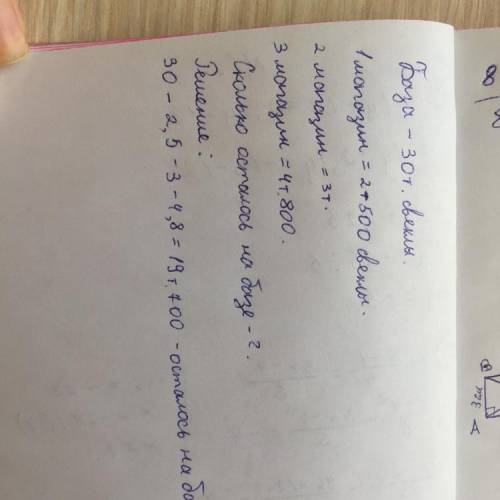 База - 30т. свеклы.
1 магазин = 2т 500 свеклы.
2 магазин = 3т.
3 магазин = 4т. 800.
Сколько осталось на базе - ?.
Решение:
30 - 2,5 - 3 - 4,8 = 19т. 700 - осталось на ба
8
В
3 см
А